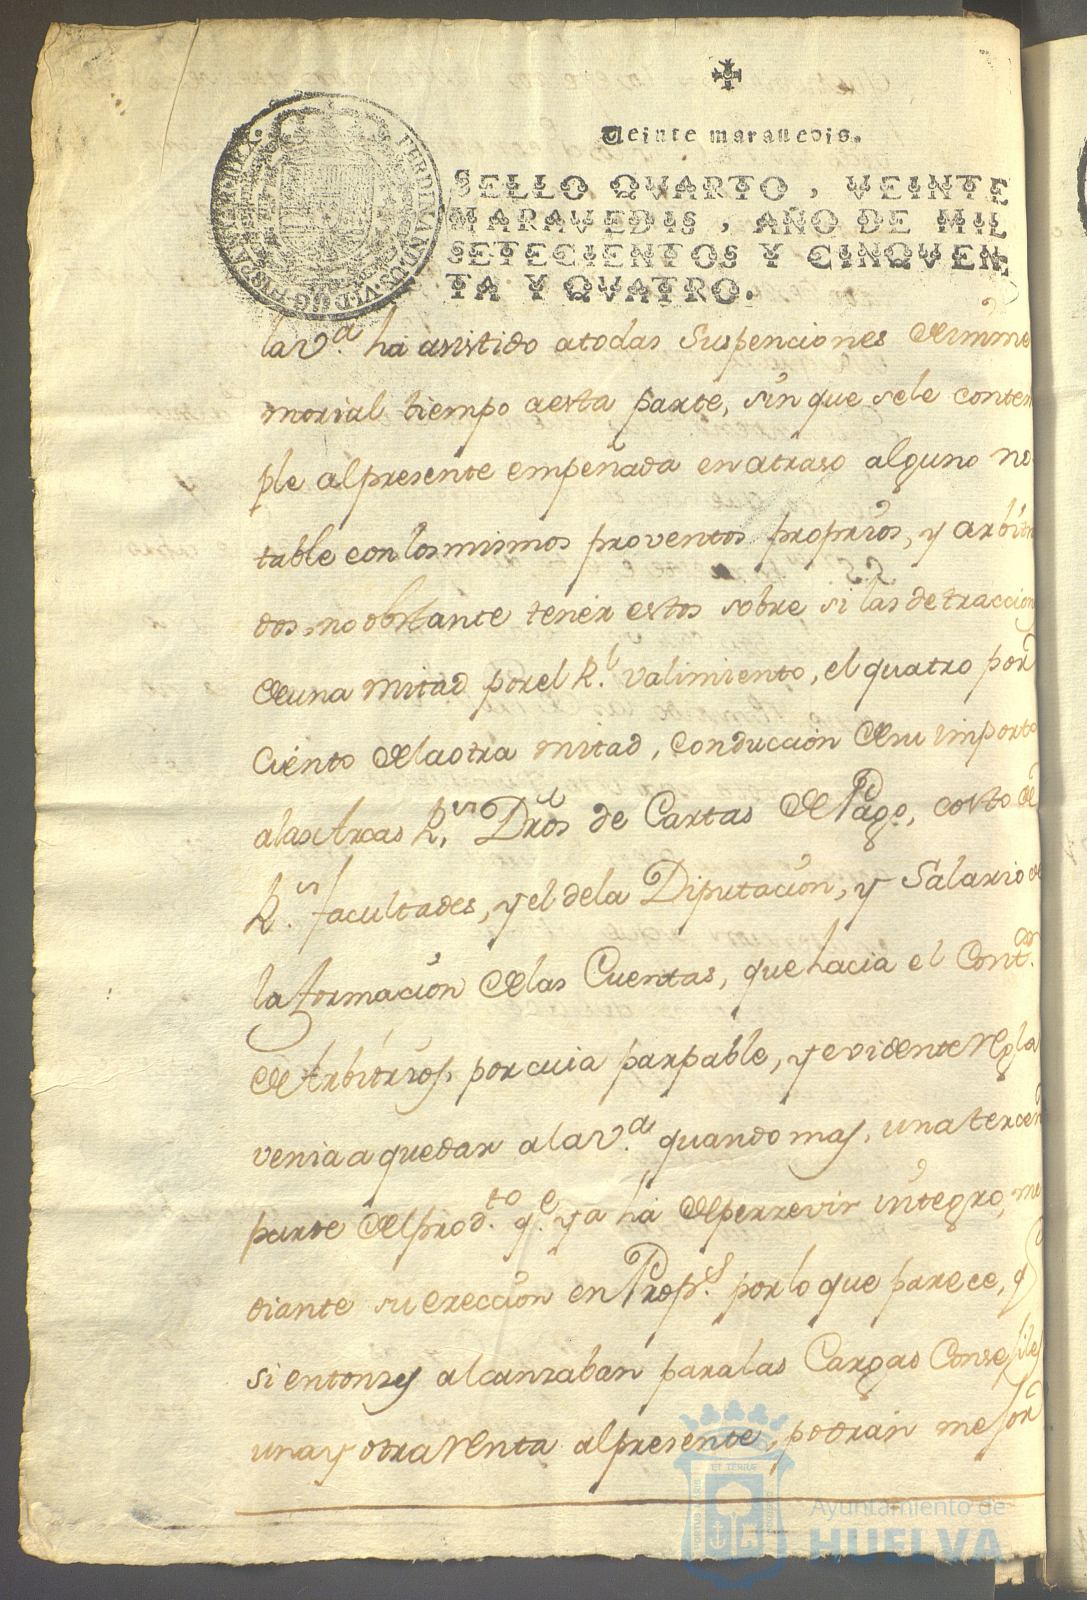 Veinte maravedis.
SELLO QVARTO, VEINTE
MARAVEDIS, AÑO DE MIL
SETECIENTOS Y CINQVEN-
TA Y QVATRO.
la v.ª ha asistido atodas Suspenciones de imme
morial tiempo aesta parte, sin que sele contem
ple alpresente empeñada en atraso alguno no
table con los mismos proventos proprios, y arbitra
dos, no obstante tener estos sobre si las detraccion
de una mitad por el R.l valimiento, el quatro por
Ciento de la otra mitad, Conduccion de su importe
alas Arcas R.s Dros de Cartas de Pago, costo de
R.s facultades, y el dela Diputacion, y Salario de
la formacion de las Cuentas, que hacia el Cont.or
de Arbitrios, por cuia parpable, y evidente regla
venia a quedar a la v.ª quando mas, una tercera
parte del prod.to q.e ya ha de perrevir integro, me
diante su ereccion en Prop.s por lo que parece, q
si entonzes alcanzaban paralas Cargas Consejiles
una y otra renta al presente, podran mejor
Ayuntamiento de
HUELVA